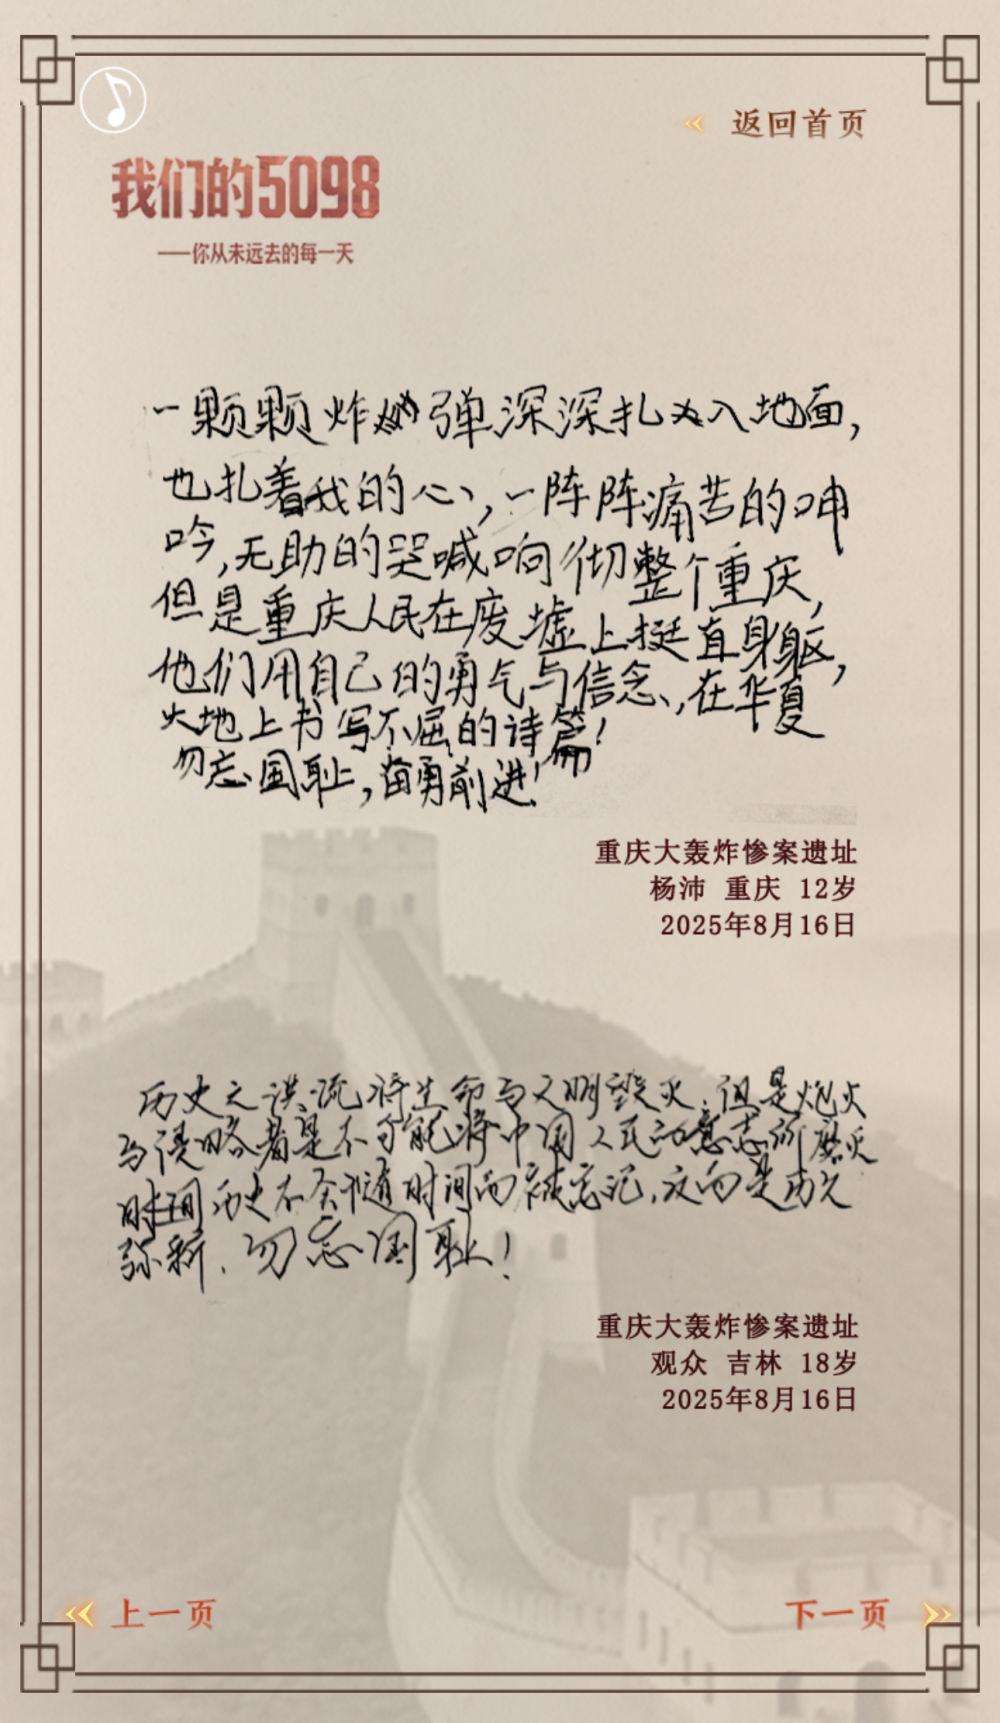 « 返回首页
我们的5098
——你从未远去的每一天
一颗颗炸弹深深扎入地面,
也扎着我的心,一阵阵痛苦的呻
吟,无助的哭喊响彻整个重庆,
但是重庆人民在废墟上挺直身躯,
他们用自己的勇气与信念,在华夏
大地上书写不屈的诗篇!
勿忘国耻,奋勇前进!
重庆大轰炸惨案遗址
杨沛 重庆 12岁
2025年8月16日
历史之洪流将生命与文明毁灭.但是炮火
与侵略者是不可能将中国人民的意志所磨灭
时间历史不会随时间而被忘记,反而是历久
弥新.勿忘国耻!
重庆大轰炸惨案遗址
观众 吉林 18岁
2025年8月16日
« 上一页
下一页 »